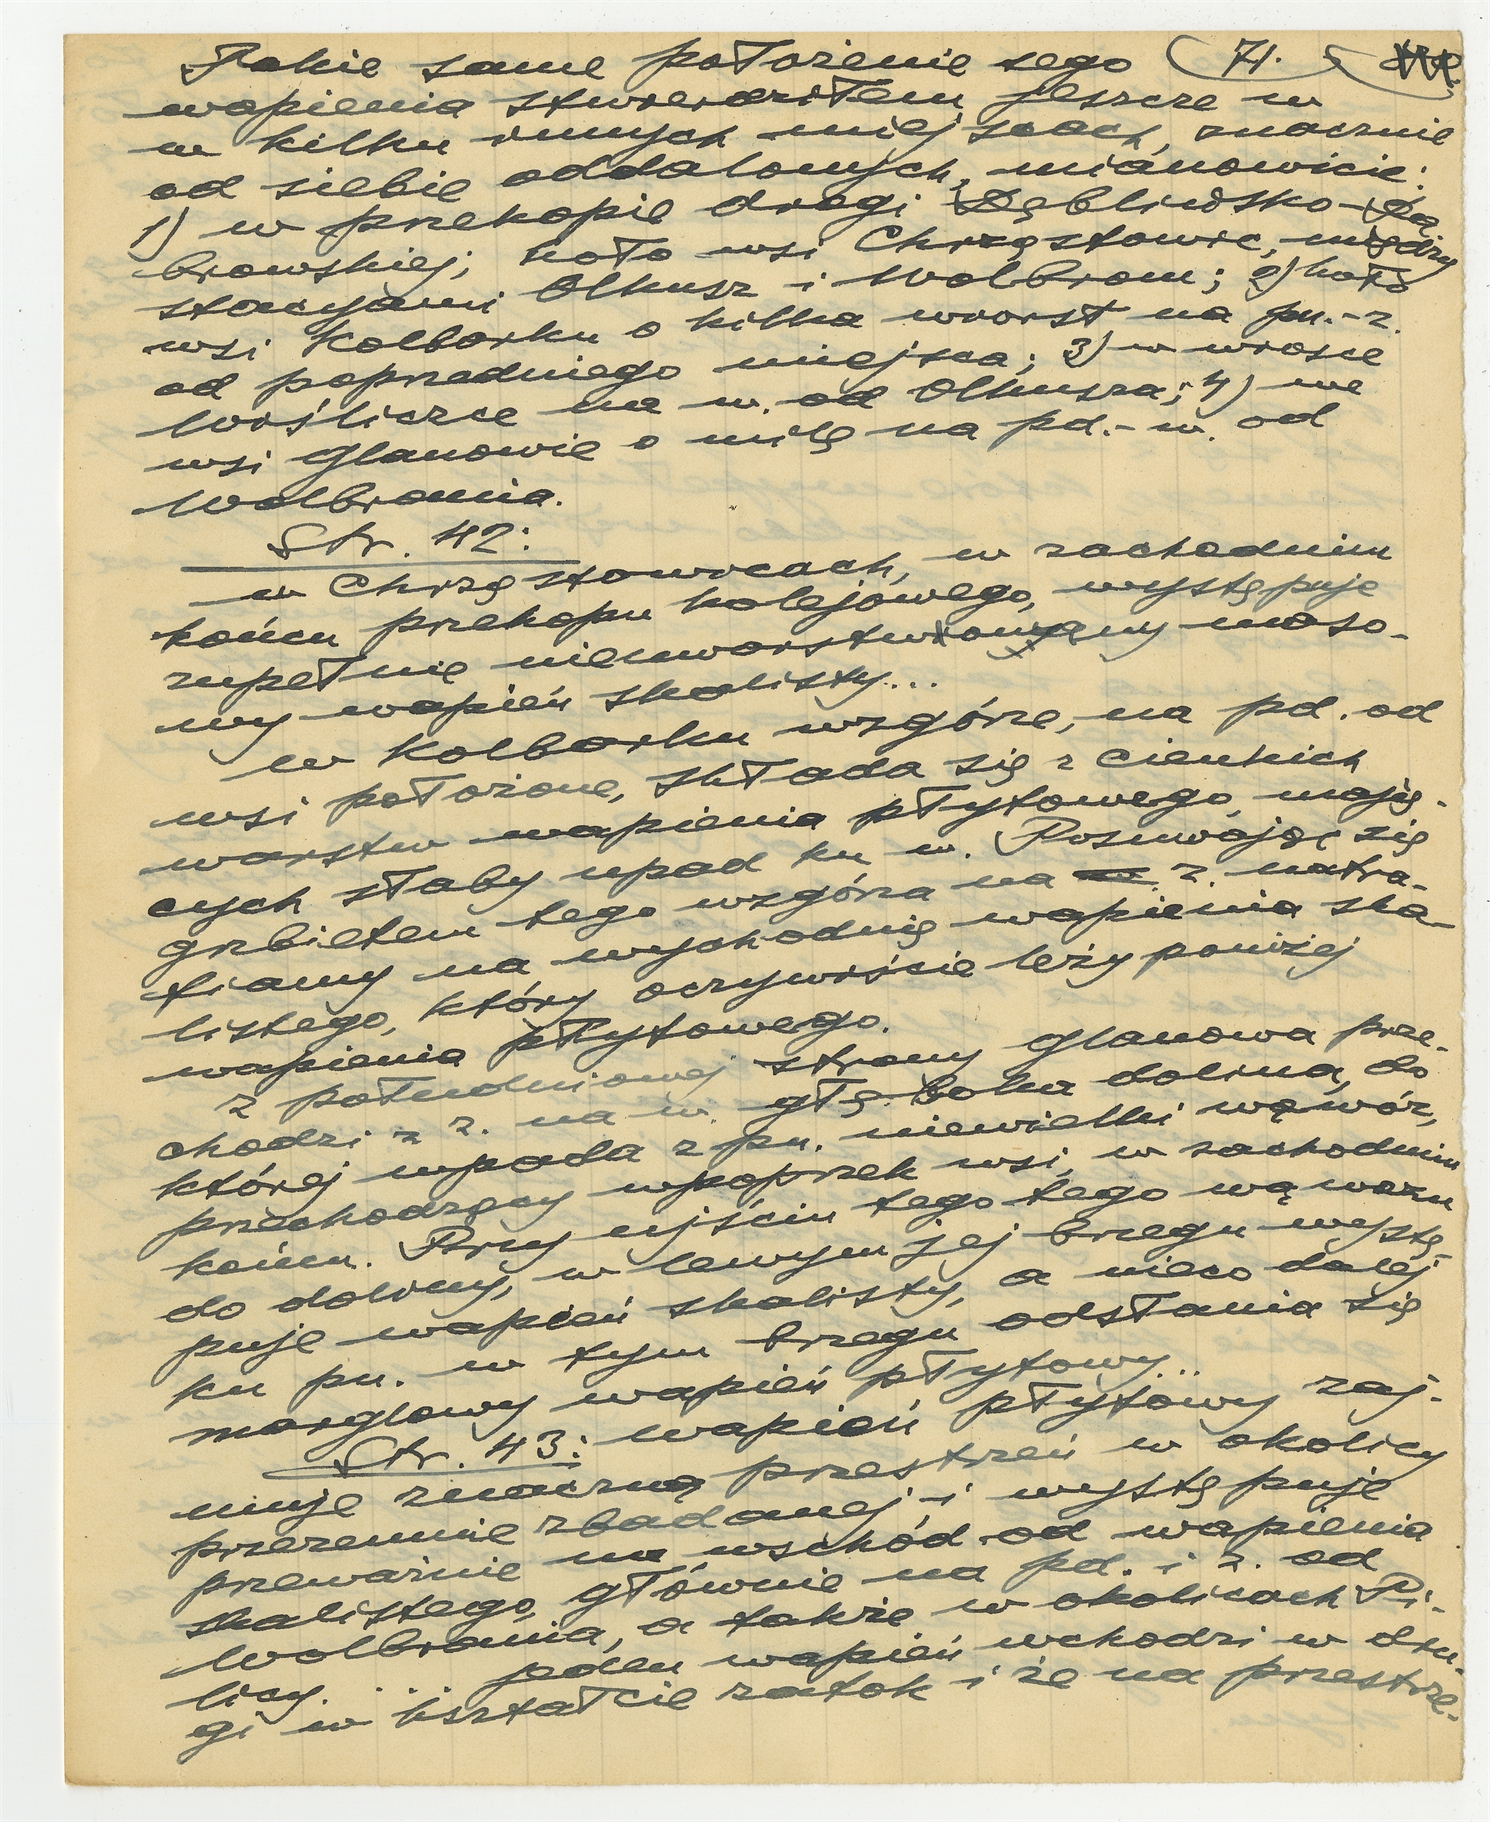 Takie same położenie tego 71.
wapienia stwierdziłem jeszcze w
w kilku innych miejscach, znacznie
od siebie oddalonych, mianowicie:
1) w przekopie drogi Dęblińsko-Dą
browskiej, koło wsi Chrząstowic, między
stacyami Olkusz i Wolbrom; 2) koło
wsi Kolbarku o kilka wiorst na pn.-z.
od poprzedniego miejsca; 3) w
Wiśliczce na w. od Olkusza; 4) we
wsi Glanowie o milę na pd.-w. od
Wolbromia.
Str. 42:
w Chrząstowicach, w zachodnim
końcu przekopu kolejowego, występuje
zupełnie nieuwarstwiony maso-
wy wapień skalisty...
w Kolbarku wzgórze, na pd. od
wsi położone, składa się z cienkich
warstw wapienia płytowego, mają-
cych słaby upad ku w. Posuwając się
grzbietem tego wzgórza na z. natra-
fiamy na wychodnię wapienia ska-
listego, który oczywiście leży poniżej
wapienia płytowego.
z południowej strony Glanowa prze-
chodzi z z. na w. głęboka dolina, do
której wpada z pn. niewielki wąwóz,
przechodzący wpoprzek wsi, w zachodnim
końcu. Przy ujściu tego tego wąwozu
do doliny, w lewym jej brzegu wystę-
puje wapień skalisty, a nieco dalej
ku pn. w tym brzegu odsłania się
marglowy wapień płytowy...
Str. 43: wapień płytowy zaj-
muje znaczną przestrzeń w okolicy
przezemnie zbadanej, i występuje
przeważnie na wschód od wapienia
skalistego, głównie na pd. i z. od
Wolbromia, a także w okolicach Pi-
licy. ... jeden wapień wchodzi w dru-
gi w kształcie zatok i że na przestrze-